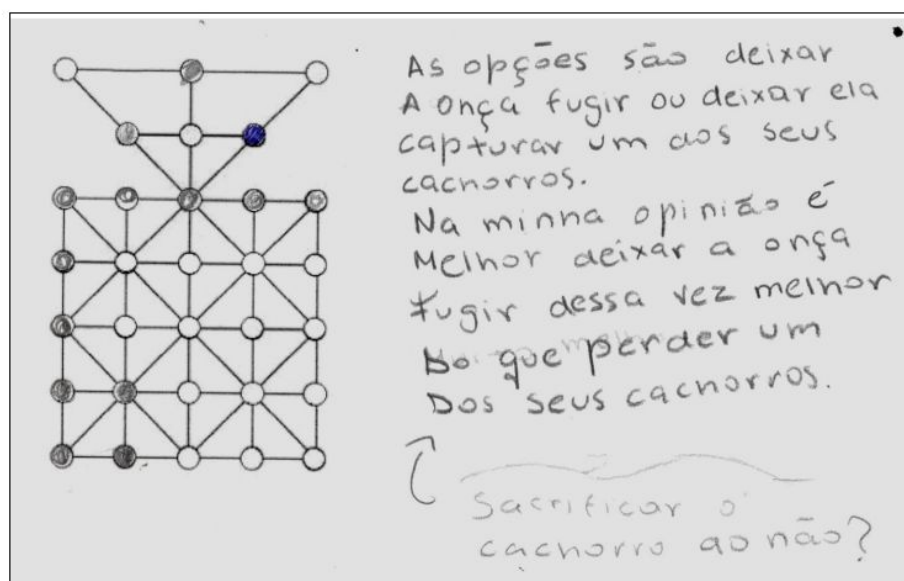 As opções são deixar
A onça fugir ou deixar ela
capturar um dos seus
cachorros.
Na minha opinião é
Melhor deixar a onça
fugir dessa vez melhor
Do que perder um
Dos seus cachorros.
Sacrificar o
cachorro ao não?